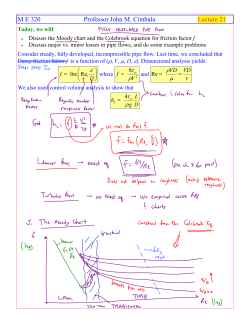 M E 320 Professor John M. Cimbala Lecture 21
Today, we will: FULLY DEVELOPED PIPE FLOW
• Discuss the Moody chart and the Colebrook equation for friction factor f
• Discuss major vs. minor losses in pipe flows, and do some example problems
Consider steady, fully developed, incompressible pipe flow. Last time, we concluded that
Darcy friction factor f is a function of (ρ, V, μ, D, ε). Dimensional analysis yields:
f = fnc(Re, ε/D) where f = 8τw/ρV² and Re = ρVD/μ = VD/ν
We also used control volume analysis to show that
hL = 4τw/ρg L/D
Reynolds number
roughness factor
Get hL = f L/D V²/2g
f = fnc(Re, ε/D)
Laminar flow → exact eq. f = 64/Re
Does not depend on roughness
Turbulent flow → no exact eq → We empirical
& charts
J. The Moody Chart
f
(log)
laminar
fully rough
smooth
LAMINAR
TURB
Re (log)
TRANSITIONAL